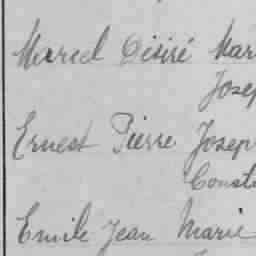 Marcel Désiré Mar
Josep
Ernest Pierre Josep
Const
Emile Jean Marie